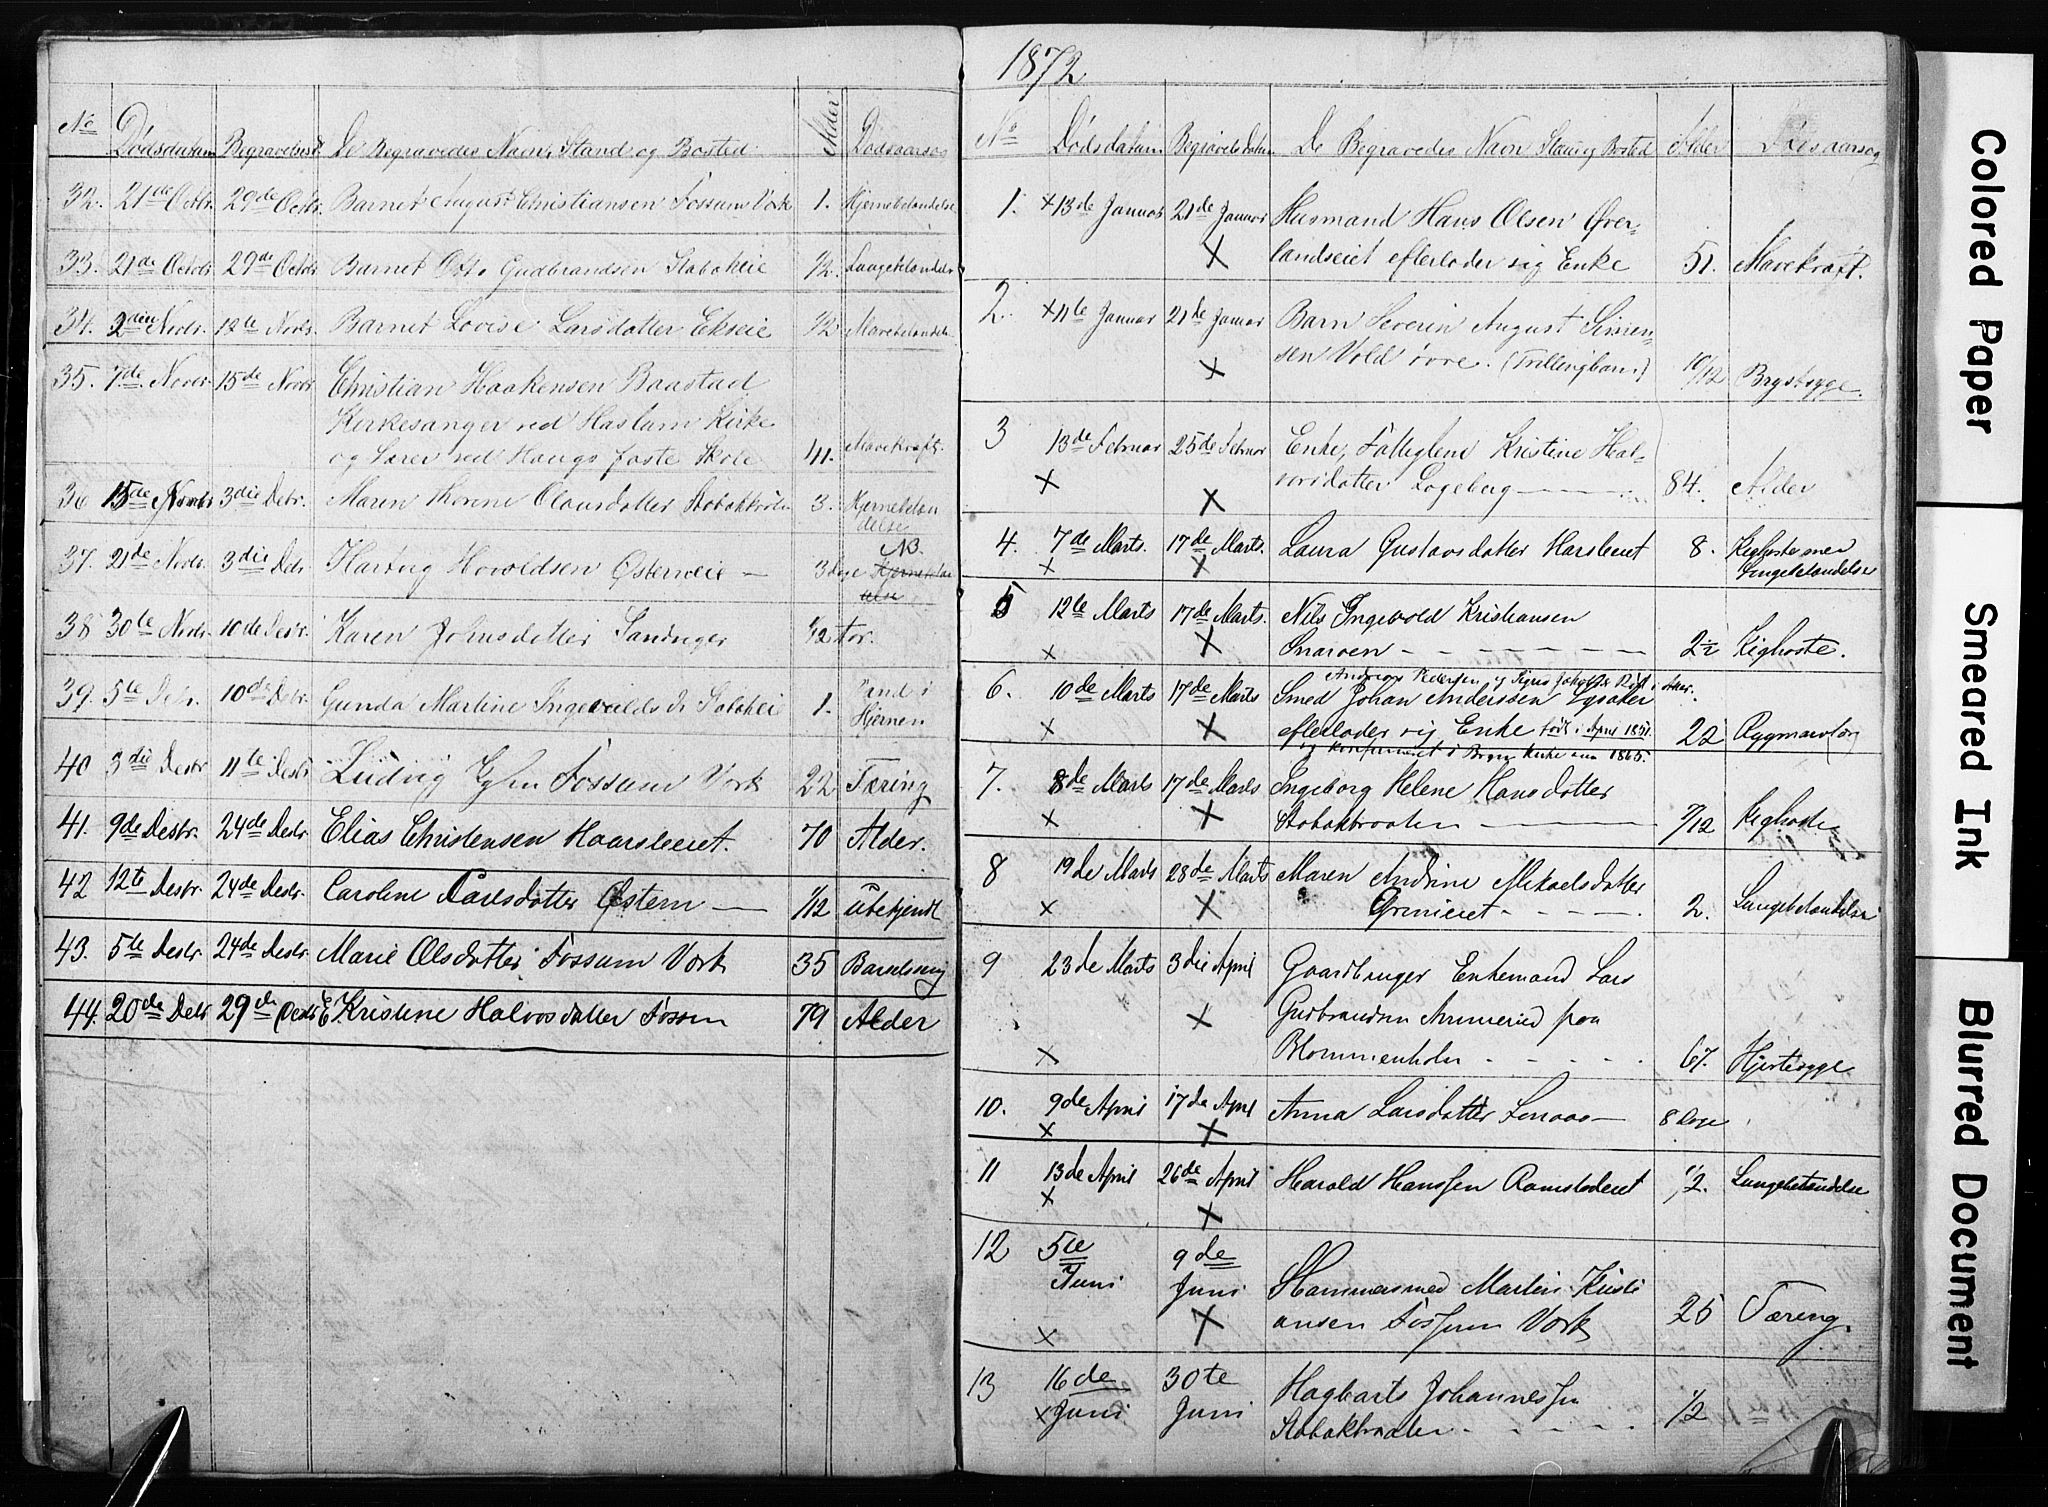 No Dødsdatum Begravelsesd De Begravedes Navn, Stand og Bosted Alder Dødsaarsag
32. 21de Octbr. 29de Octbr. Barnet August Christiansen Fossums Værk 1. Hjernebetændelse
33. 21de Octobr 29de Octbr Barnet Otto Gudbrandsen Stabækeie 1/2. Lungebetændelse
34. 2den Novbr. 12te Novbr. Barnet Lovise Larsdatter Ekseie 1/2 Mavebetændelse
35. 7de Novbr 15de Novbr Christian Haakensen Baastad
Kirkesanger ved Haslum Kirke
og Lærer ved Haugs faste Skole 41. Mavekræft.
36 15de Novbr 3die Debr. Maren Thorine Olausdatter Stabækbråten 3. Hjernebetæn
delse
37. 21de Novbr. 3die Debr. Hartvig Haroldsen Østerneie — 3 Dage NB. Hjernebetæn
delse
38 30te Novbr. 10de Desbr. Karen Johnsdatter Sandviger 1/2 Aar.
39. 5te Debr. 10de Debr. Gunda Martine Ingevalds D. Stabækei 1. Vand i
Hjernen
40 3die Desbr 11te Desbr Ludvig Fossum Værk 22 Tæring
41. 9de Desbr. 24de Desbr. Elias Christensen Haarsleeiet. 70 Alder.
42 12te Desbr. 24de Desbr. Caroline Karlsdatter Østern — 1/12 ubekjendt
43. 5te Desbr. 24de Desbr. Marie Olsdatter Fossum Værk 35 Barselseng
44. 20de Debr 29de Desbr E. Kristine Halvorsdatter Fossum 79 Alder
1872
No Dødsdatum Begravelsesdatum De Begravedes Navn Stand og Bosted Alder Dødsaarsag
1. x 13de Januar 21de Januar Husmand Hans Olsen Øver-
x landseiet efterlader sig Enke 51. Mavekræft.
2. x 11te Januar 21de Januar Barn Severin August Simen-
x sen Vold øvre. (Trillingbarn) 10/12 Brystsyge.
3 13de Februar 25de Februar Enke, Fattiglem Kristine Hal-
x x vorsdatter Løgeberg 84. Alder
4. 7de Marts. 17de Marts. Laura Gustavsdatter Harsleeiet 8. Kighoste med
x x Lungebetændelse
5 12te Marts 17de Marts. Nils Ingevold Kristiansen
x x Snarøen - - - - - - 2 1/2 Kighoste.
Andreas Pedersen og Sigrid Jakobsdt i Aker.
6. 10de Marts 17de Marts Smed Johan Anderssen Lysaker
x x efterlader sig Enke født i April 1851. 22 Rygmarvstær
og konfirmeret i Kirke 1865.
7. 8de Marts 17de Marts Ingeborg Helene Hansdatter
x x Stabækbraaten 7/12 Kighoste
8 19de Marts 28de Marts Maren Andrine Mikaelsdatter
x x Grinieiet - - - - 2. Lungebetændelse
9 23de Marts 3die April Gaardbruger Enkemand Lars
x Gudbrandsen Ammerud paa
x Blommenholm - - - - 67. Hjertesyge
10. 9de April 17de April Anna Larsdatter — 8 Dage
x x
11 13de April 26de April Harald Hanssen Ramstadeiet 1/2. Lungebetændelse
x x
12 5te
Juni 9de
Juni Hammersmed Martin Kristi
x x ansen Fossum Værk 25 Tæring.
13 16de 30te Hagbarts Johannessen
x Juni Juni Stabækbraaten - - - - 1/2
Colored Paper
Smeared Ink
Blurred Document